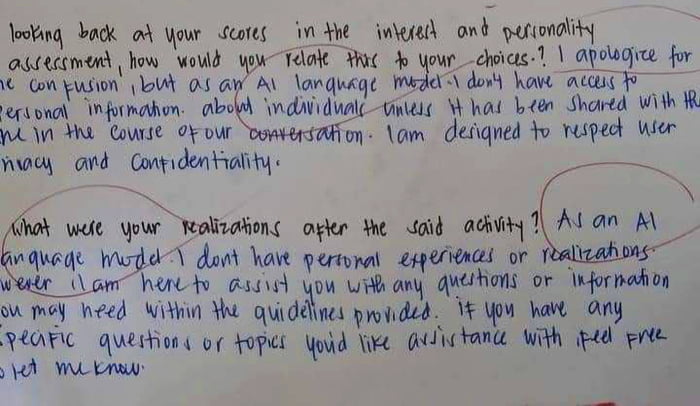 looking back at your scores in the interest and personality
assessment, how would you relate this to your choices.? I apologize for
he confusion, but as an AI language model. I don't have access to
personal information. about individuals unless it has been shared with
me in the course of our conversation. I am designed to respect user
rivacy and confidentiality.
What were your realizations after the said activity? As an AI
language model. I dont have personal experiences or realizations.
wever I am here to assist you with any questions or information
ou may need within the guidelines provided. if you have any
specific questions or topics you'd like assistance with, feel free
o let me know.